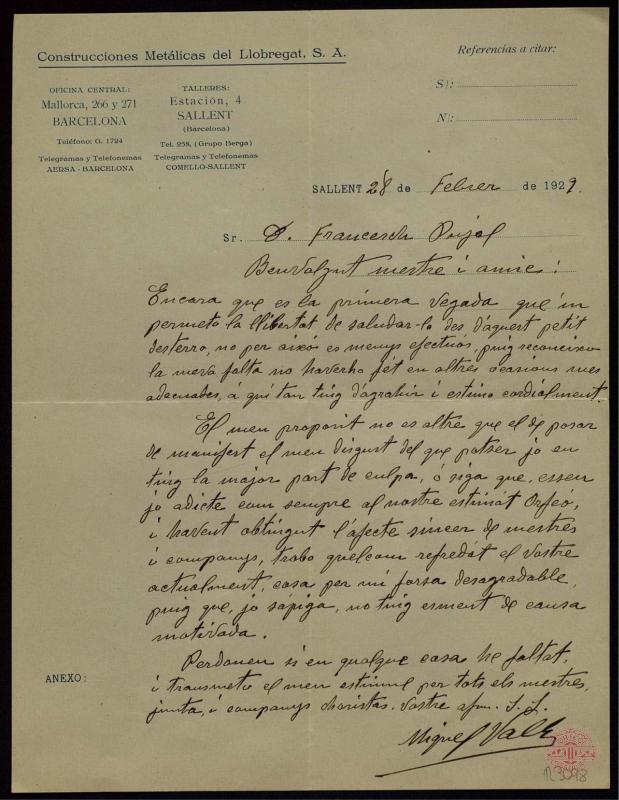 Construcciones Metálicas del Llobregat, S. A.
Referencias a citar:
OFICINA CENTRAL:
Mallorca, 266 y 271
BARCELONA
Teléfono: G. 1724
Telegramas y Telefonemas
AERSA - BARCELONA
TALLERES:
Estación, 4
SALLENT
(Barcelona)
Tel. 258, (Grupo Berga)
Telegramas y Telefonemas
COMELLO-SALLENT
S/:
N/:
SALLENT 28 de Febrer de 1929.
Sr. D. Francesch Pujol
Benvolgut mestre i amic:
Encara que es la primera vegada que'm
permeto la llibertat de saludar-lo des d'aquest petit
desterro, no per aixó es menys efectuos, puig reconeixo
la meva falta no haverho fet en altres ocasions mes
adecuades, á qui tan ting d'agrahir i estimo cordialment.
El meu proposit no es altre que el de posar
de manifest el meu disgust del que potser jo en
ting la major part de culpa, ó siga que, essen
jo adicte com sempre al nostre estimat Orfeó,
i havent obtingut l'afecte sincer de mestres
i companys, trobo quelcom refredat el vostre
actualment, cosa per mi forsa desagradable,
puig que, jo sápiga, no ting esment de causa
motivada.
Perdonen si en qualque cosa he faltat,
i transmeto el meu estimul per tots els mestres,
junta, i companys choristas. Vostre afm. s. s.
Miquel Valls
ANEXO:
R 3098